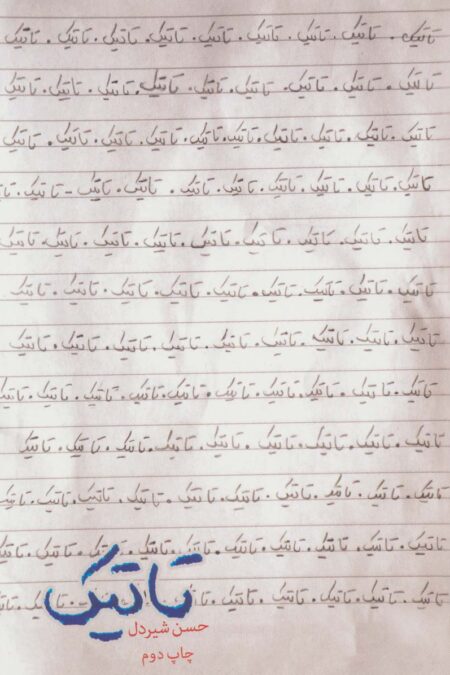 تاتیک . تاتیک . تاتیک . تاتیک . تاتیک . تاتیک . تاتیک . تاتیک . تاتیک
تاتیک . تاتیک . تاتیک . تاتیک . تاتیک . تاتیک . تاتیک . تاتیک . تاتیک
تاتیک . تاتیک . تاتیک . تاتیک . تاتیک . تاتیک . تاتیک . تاتیک . تاتیک . تاتیک
تاتیک . تاتیک . تاتیک . تاتیک . تاتیک . تاتیک . تاتیک . تاتیک - تاتیک
تاتیک . تاتیک . تاتیک . تاتیک . تاتیک . تاتیک . تاتیک . تاتیک . تاتیک
تاتیک . تاتیک . تاتیک . تاتیک . تاتیک . تاتیک . تاتیک . تاتیک . تاتیک
تاتیک . تاتیک . تاتیک . تاتیک . تاتیک . تاتیک . تاتیک . تاتیک . تاتیک
تاتیک . تاتیک . تاتیک . تاتیک . تاتیک . تاتیک . تاتیک . تاتیک . تاتیک . تاتیک
تاتیک . تاتیک . تاتیک . تاتیک . تاتیک . تاتیک . تاتیک . تاتیک . تاتیک
تاتیک . تاتیک . تاتیک . تاتیک . تاتیک . تاتیک . تاتیک . تاتیک . تاتیک . تاتیک
تاتیک . تاتیک . تاتیک . تاتیک . تاتیک . تاتیک . تاتیک . تاتیک . تاتیک . تاتیک
تاتیک . تاتیک . تاتیک . تاتیک . تاتیک
تاتیک
حسن شیردل
چاپ دوم